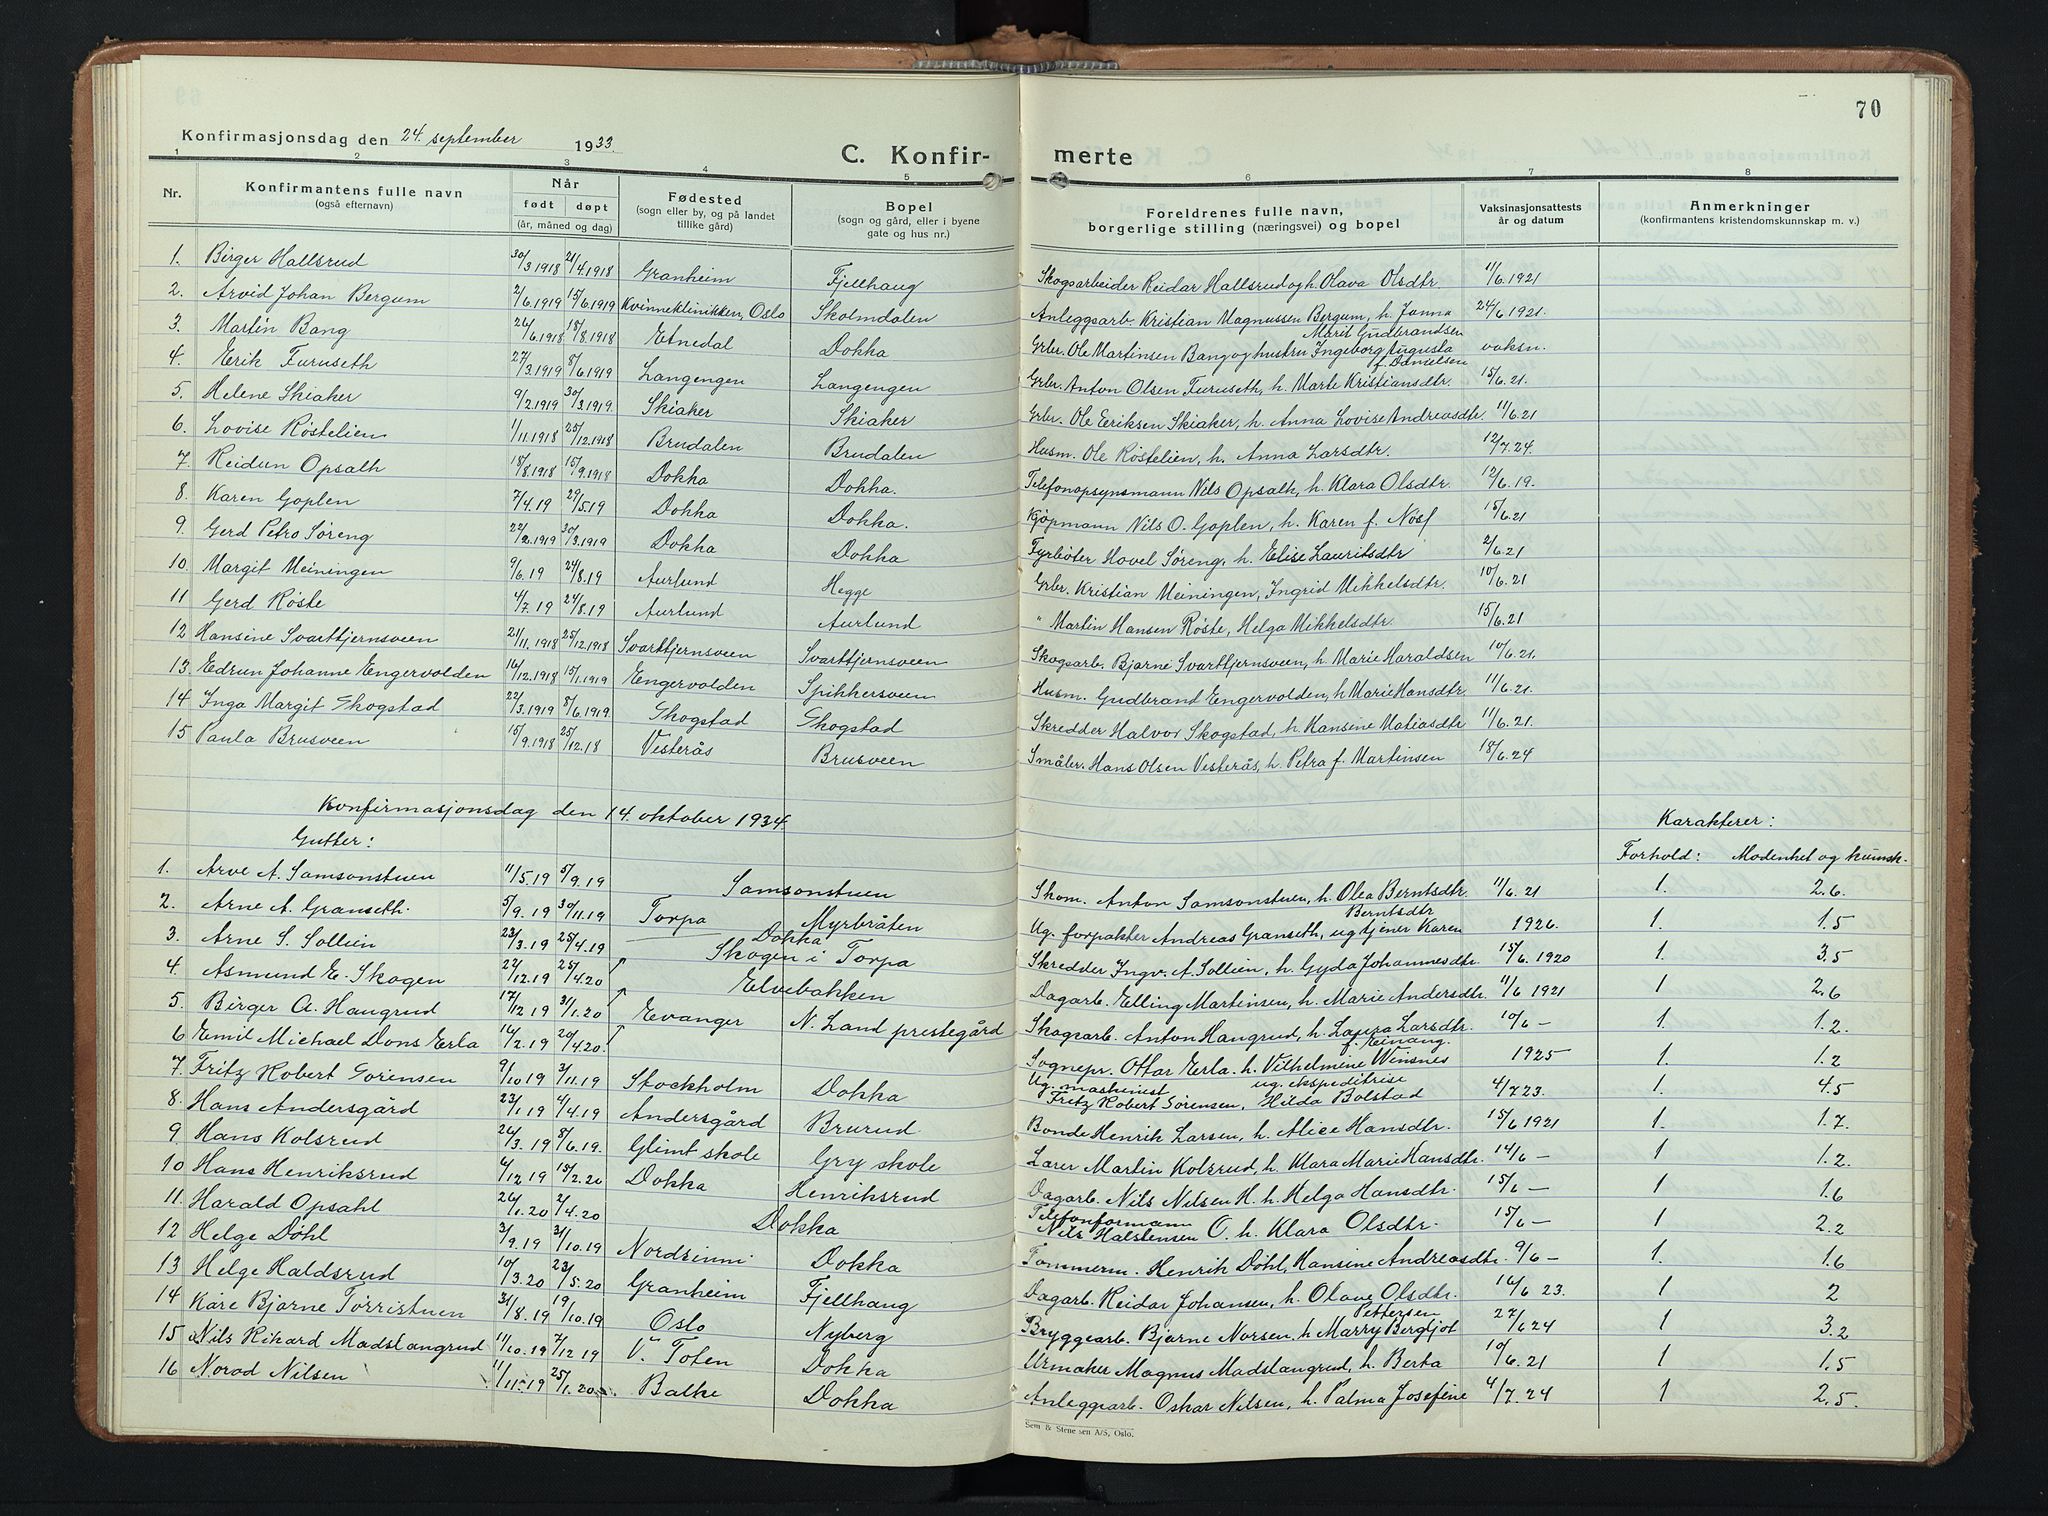 70
Konfirmasjonsdag den 24. september 1933.
C. Konfir- merte
1 2 3 4 5 6 7 8
Nr. Konfirmantens fulle navn (også efternavn) Når født døpt (år, måned og dag) Fødested (sogn eller by, og på landet tillike gård) Bopel (sogn og gård, eller i byene gate og hus nr.) Foreldrenes fulle navn, borgerlige stilling (næringsvei) og bopel Vaksinasjonsattests år og datum Anmerkninger (konfirmantens kristendomskunnskap m. v.)
1. Birger Hallsrud 30/3.1918 21/4.1918 Granheim Fjellhaug Skogsarbeider Reidar Hallsrud og h. Olava Olsdtr. 11/6.1921
2. Arvid Johan Bergum 2/6.1919 15/6.1919 Kvinneklinikken, Oslo Skolmdalen Anleggsarb. Kristian Magnussen Bergum, h. Janna Marit Gudbrandsen 24/6.1921.
3. Martin Bang 26/6.1918 18/8.1918 Etnedal Dokka Grbr. Ole Martinsen Bang og hustru Ingeborg Augusta f. Danielsen vaksn.
4. Erik Furuseth 27/3.1919 8/6.1919 Langengen Langengen Grbr. Anton Olsen Furuseth, h. Marte Kristiansdtr. 15/6.21.
5. Helene Skiaker 9/2.1919 30/3.1919. Skiaker Skiaker Grbr. Ole Eriksen Skiaker, h. Anna Lovise Andreasdtr. 11/6.21
6. Lovise Røstelien 1/11.1918 25/12.1918 Brudalen Brudalen Husm. Ole Røstelien, h. Anna Larsdtr. 12/7.24.
7. Reidun Opsalh 18/8.1918 15/9.1918 Dokka Dokka. Telefonopsynsmann Nils Opsalh, h. Klara Olsdtr. 12/6.19.
8. Karen Goplen 7/4.19 27/5.19 Dokka Dokka. Kjøpmann Nils O. Goplen, h. Karen f. Nøsf 15/6.21
9. Gerd Petro Søreng 22/2.1919 30/3.1919 Dokka Dokka Fyrbøter Hovel Søreng, h. Elise Lauritsdtr 2/6.21
10. Margit Meiningen 9/6.19 24/8.19 Aurlund Hegge Grbr. Kristian Meiningen, Ingrid Mikkelsdtr. 10/6.21
11. Gerd Røste 4/7.19 24/8.19 Aurlund Aurlund " Martin Hansen Røste, Helga Mikkelsdtr. 15/6.21
12 Hansine Svarttjernsveen 21/11.1918 25/12.1918 Svarttjernsveen Svarttjernsveen Skogsarb. Bjarne Svarttjernsveen, h. Marie Haraldsen 10/6.21.
13. Edrun Johanne Engervolden 16/12.1918 15/1.1919 Engervolden Spikkersveen Husm. Gudbrand Engervolden, h. Marie Hansdtr. 11/6.21.
14 Inga Margit Skogstad 22/3.1919 8/6.1919. Skogstad Skogstad Skredder Halvor Skogstad, h. Hansine Matiasdtr 11/6.21.
15 Paula Brusveen 15/9.1918 25/12.18 Vesterås Brusveen Småbr. Hans Olsen Vesterås, h. Petra f. Martinsen 18/6.24
Konfirmasjonsdag den 14. oktober 1934.
Karakterer:
Gutter:
Forhold: Modenhet og kunnsk.
1. Arve A. Samsonstuen 11/5.19 5/9.19 Samsonstuen Skom. Anton Samsonstuen, h. Olea Berntsdtr. 11/6.21 1. 2.6.
2. Arne A. Granseth. 5/9.19 30/11.19 Torpa Myrbråten Ug. forpakter Andreas Granseth, ug tjener Karen Berntsdtr 1926. 1. 1.5
3. Arne S. Sollien 23/3.19 25/4.19 Dokka Skredder Ingv. A. Sollien, h. Gyda Johannesdtr. 15/6.1920 1. 3.5
4. Asmund E. Skogen 22/12.19 25/4.20 Skogen i Torpa Dagarb. Elling Martinsen, h. Marie Andersdtr. 11/6 1921 1 2.6
5. Birger A. Haugrud 17/12 19 31/1.20 Elvebakken Skogsarb. Anton Haugrud, h. Laura Larsdtr. 10/6 – 1. 1.2.
6 Emil Michael Dons Erla 16/2.19 20/4.20. Evanger N. Land prestegård Sognepr. Ottar Erla. h. Vilhelmine Winsnes f. Einang. 1925 1. 1.2
7. Fritz Robert Sørensen 9/10 19 3/11.19 Stockholm Dokka Ug. maskinist Fritz Robert Sørensen, ug. ekspeditrise Hilda Bolstad 4/7 23. 1. 4.5
8. Hans Andersgård 23/1.19 4/4.19 Andersgård Brurud. Bonde Henrik Larsen, h. Alice Hansdtr. 15/6 1921 1 1.7.
9 Hans Kolsrud 26/3.19 8/6.19. Glimt skole Gry skole Lærer Martin Kolsrud, h. Klara Marie Hansdtr. 14/6 – 1 1.2.
10 Hans Henriksrud 6/12 19 15/2.20 Dokka Henriksrud Dagarb. Nils Nilsen H. h. Helga Hansdtr. 15/6 – 1 1.6
11. Harald Opsahl 26/1.20 2/4.20 Dokka Telefonformann Nils Halstensen O. h. Klara Olsdtr. 15/6 – 1 2.2
12 Helge Døhl 3/9.19 31/10.19 Nordsinni Dokka Tømmerm. Henrik Døhl, Hansine Andreasdtr. 9/6 – 1. 1.6
13 Helge Haldsrud 10/3.20 23/5.20 Granheim Fjellhaug Dagarb. Reidar Johansen, h. Olave Olsdtr. 16/6 23. 1 2
14 Kåre Bjarne Tørristuen 31/8.19 19/10.19 Oslo Nyberg Bryggearb. Bjarne Norsen, h Marry Bergljot Pettersen 27/6 24 1 3.2
15 Nils Rikard Madslangrud 11/10.19 7/12 19 V. Toten Dokka Urmaker Magnus Madslangrud, h. Berta 10/6.21 1 1.5
16 Norod Nilsen 11/11.19 25/1.20 Balke Dokka Anleggsarb. Oskar Nilsen, h. Palma Josefine 4/7.24 1 2.5.
Sem & Stenersen A/S, Oslo.